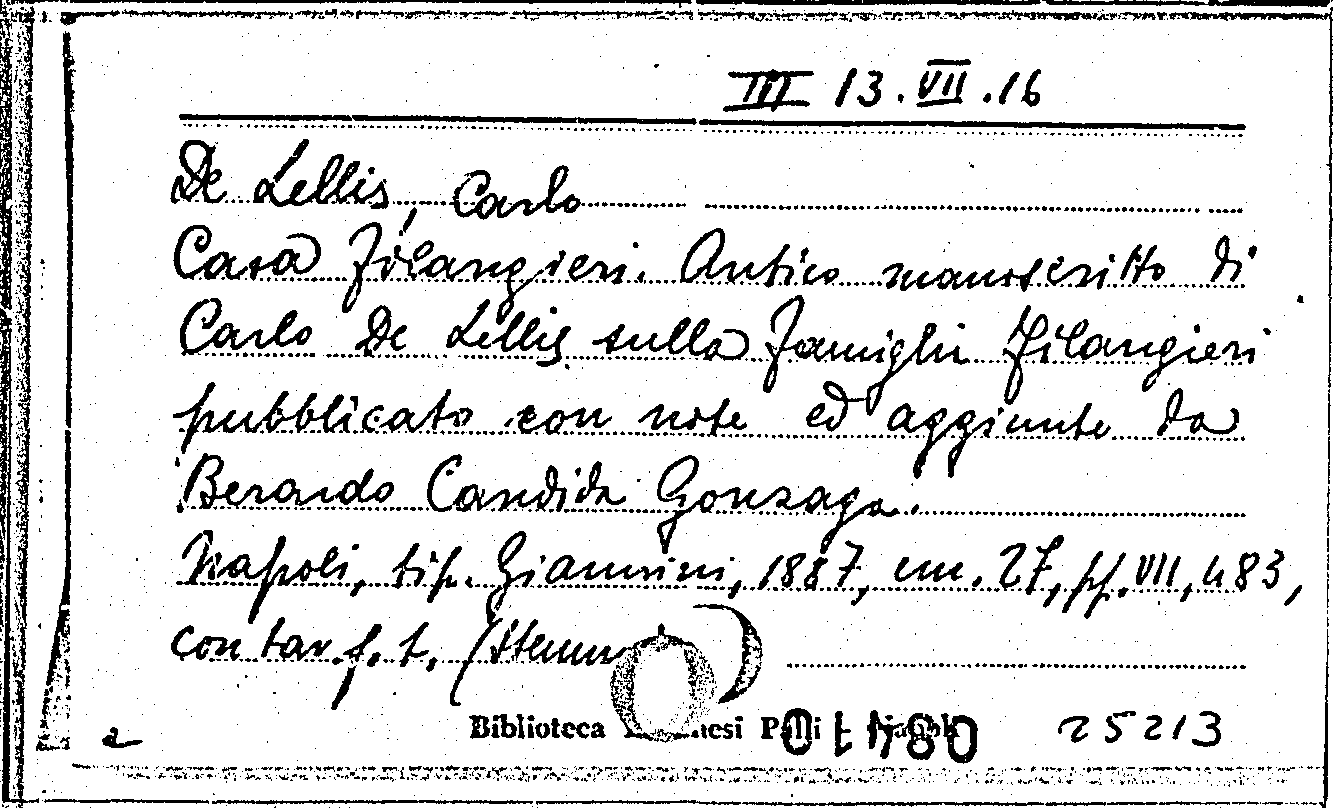 III 13.VII.16
De Lellis, Carlo
Casa Filangieri. Antico manoscritto di
Carlo De Lellis sulla famiglia Filangieri
pubblicato con note ed aggiunte da
Berardo Candida Gonzaga.
Napoli, tip. Giannini, 1887, cm. 27, pp. VII, 483,
con tav. f. t. (Stemm
Biblioteca
25213
a